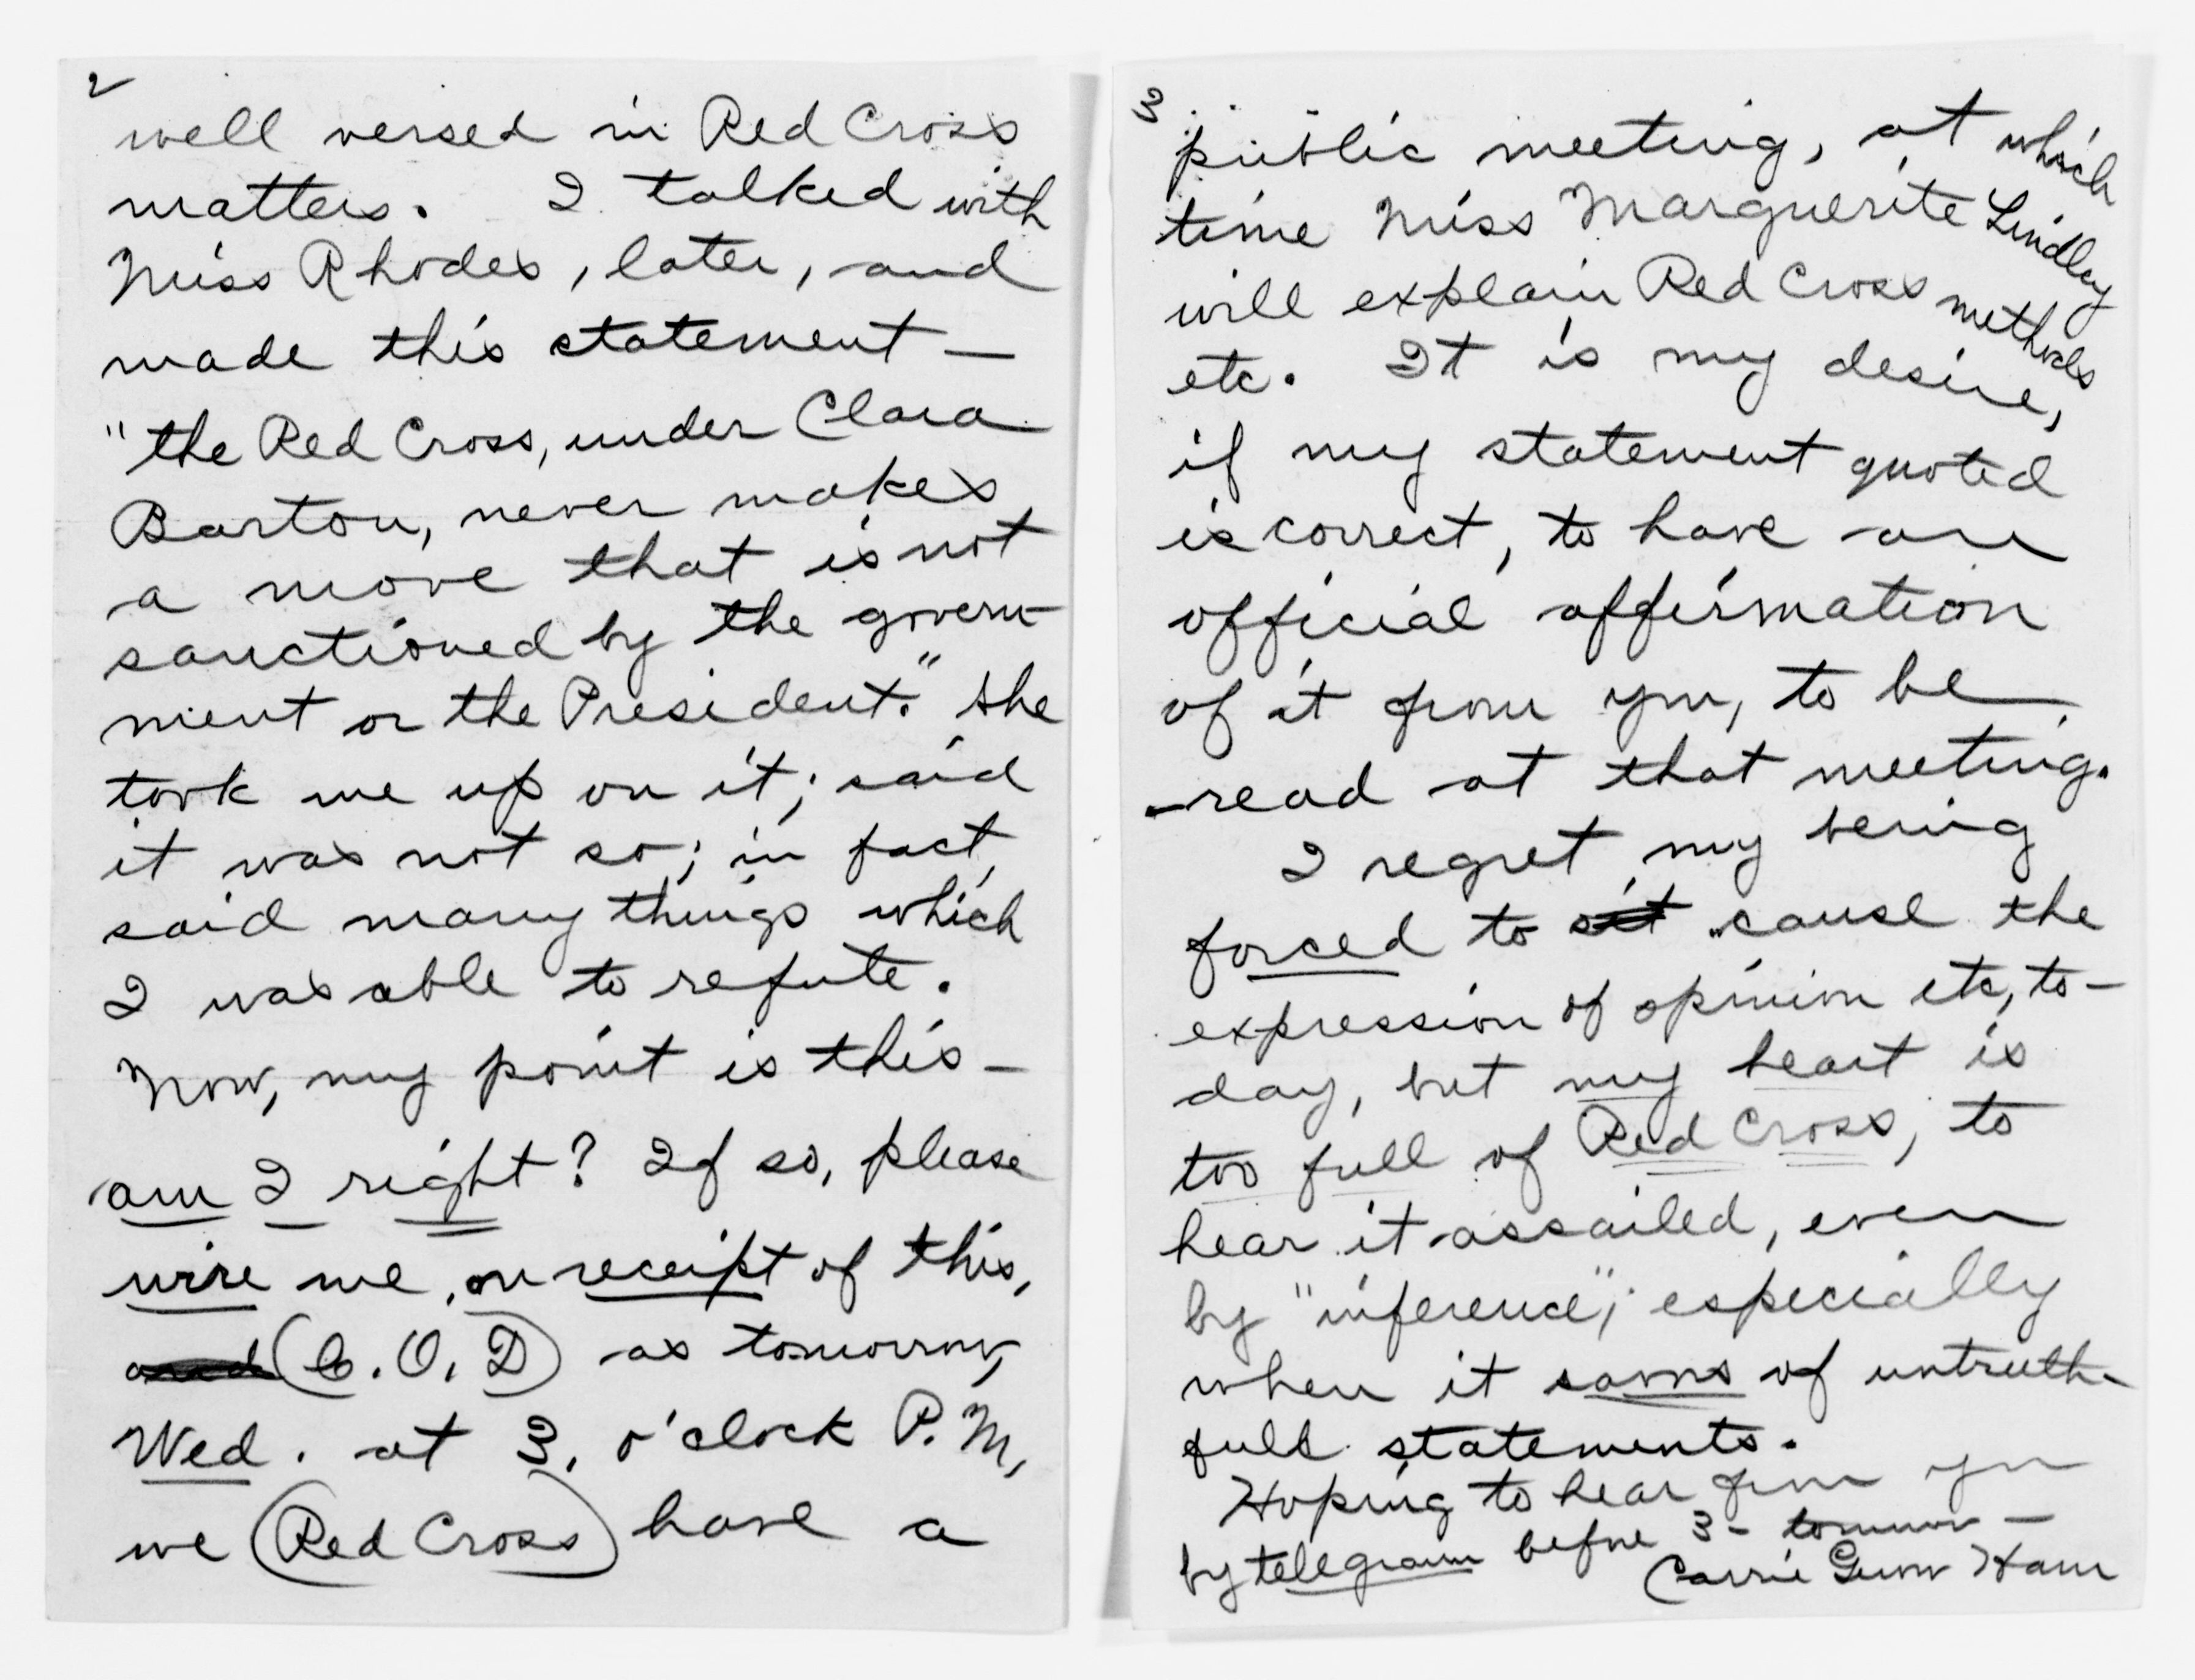 2
well versed in Red Cross
matters. I talked with
Miss Rhodes, later, and
made this statement —
"the Red Cross, under Clara
Barton, never makes
a move that is not
sanctioned by the govern-
ment or the President." She
took me up on it; said
it was not so; in fact,
said many things which
I was able to refute.
Now, my point is this —
am I right? If so, please
wire me, on receipt of this,
and (C.O.D) as tomorrow,
Wed. at 3, o'clock P.M,
we (Red Cross) have a
3
public meeting, at which
time Miss Marguerite Lindley
will explain Red Cross methods
etc. It is my desire,
if my statement quoted
is correct, to have an
official affirmation
of it from you, to be
read at that meeting.
I regret my being
forced to cause the
expression of opinion etc, to-
day, but my heart is
too full of Red Cross, to
hear it assailed, even
by "inference"; especially
when it savors of untruth-
full statements.
Hoping to hear from you
by telegram before 3 - tomorrow —
Carrie Ham